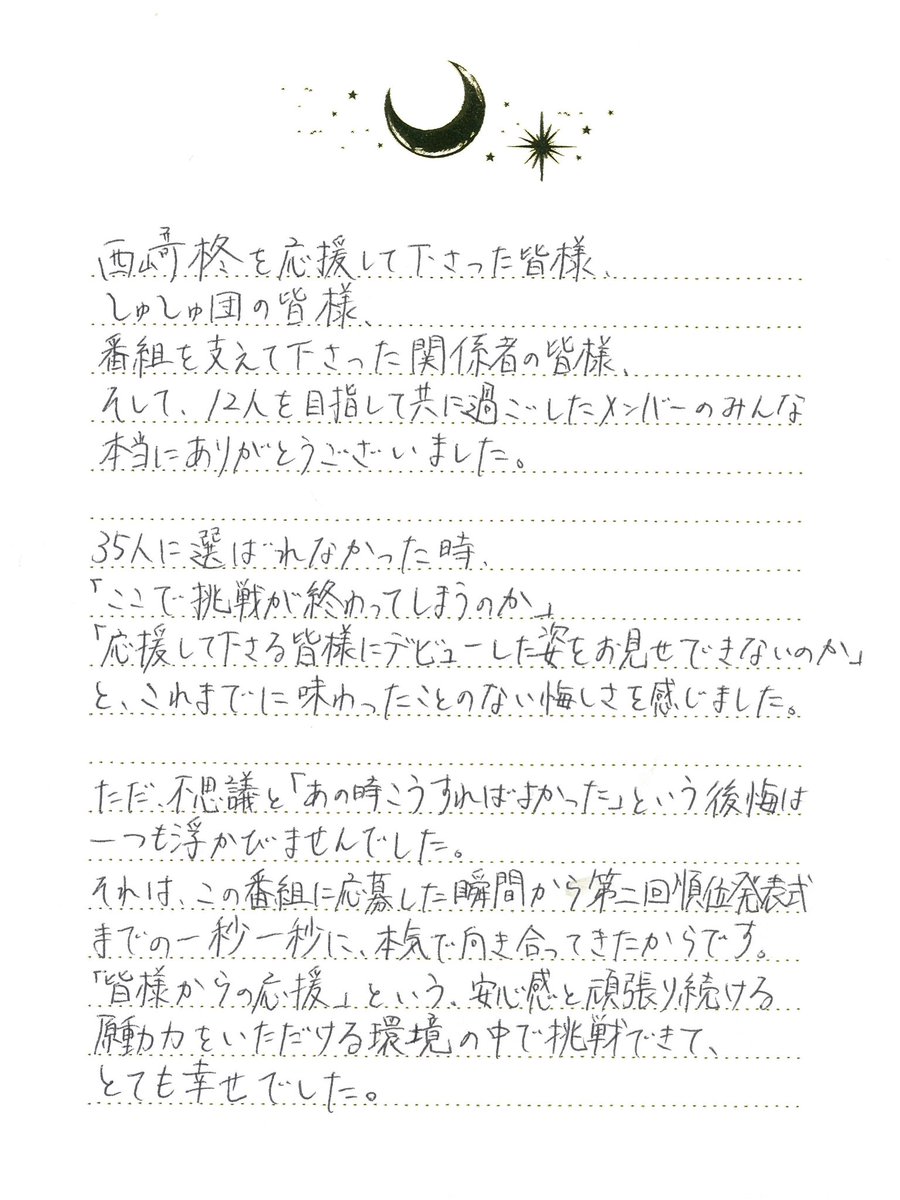 西﨑柊を応援して下さった皆様、
しゅしゅ団の皆様、
番組を支えて下さった関係者の皆様、
そして、12人を目指して共に過ごしたメンバーのみんな
本当にありがとうございました。
35人に選ばれなかった時、
「ここで挑戦が終わってしまうのか」
「応援して下さる皆様にデビューした姿をお見せできないのか」
と、これまでに味わったことのない悔しさを感じました。
ただ、不思議と「あの時こうすればよかった」という後悔は
一つも浮かびませんでした。
それは、この番組に応募した瞬間から第二回順位発表式
までの一秒一秒に、本気で向き合ってきたからです。
「皆様からの応援」という、安心感と頑張り続ける
原動力をいただける環境の中で挑戦できて、
とても幸せでした。